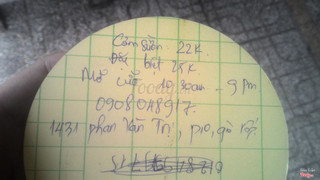 Cơm sườn 22k.
Đặc biệt 25k
Mở cửa 10 30am - 9 pm
0908048917.
1431 phan Văn Trị, p10, gò vấp.